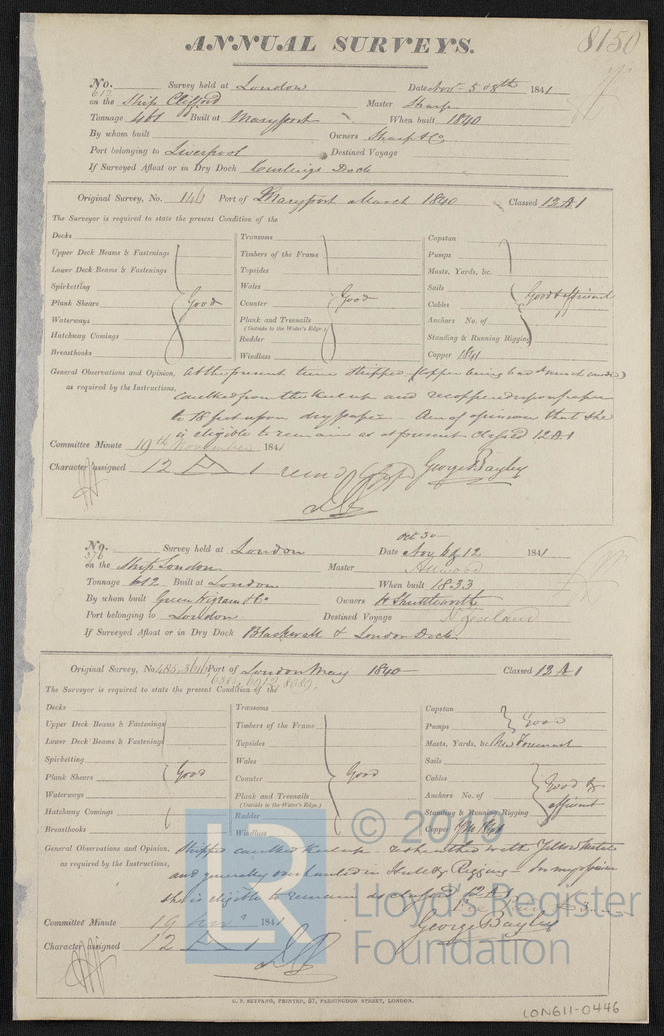 8150
ANNUAL SURVEYS.
No. 612 Survey held at London Date Nov 5 & 8th 1841
on the Ship Clifford Master Sharp
Tonnage 461 Built at Maryport When built 1840
By whom built Owners Sharp & Co
Port belonging to Liverpool Destined Voyage
If Surveyed Afloat or in Dry Dock Curlings Dock
Original Survey, No. 146 Port of Maryport March 1840 Classed 12 A 1
The Surveyor is required to state the present Condition of the
Decks Transoms Capstan
Upper Deck Beams & Fastenings Timbers of the Frame Pumps
Lower Deck Beams & Fastenings Topsides Masts, Yards, &c.
Spirketting Wales Sails
Plank Shears Good Counter Good Cables Good & efficient
Waterways Plank and Treenails Anchors No. of
(Outside to the Water's Edge.)
Hatchway Comings Rudder Standing & Running Rigging
Breasthooks Windlass Copper 1841
General Observations and Opinion, At the present time stripped (Copper being bad & much
as required by the Instructions, caulked from the Keel up and recoppered upon paper
to 18 feet upon dry paper - Am of opinion that she
is eligible to remain as at present classed 12 A 1
Committee Minute 19th November 1841
Character assigned 12 A 1 George Bayley
No. 576 Survey held at London Date Oct 30 Nov 12 1841
on the Ship London Master Attwood
Tonnage 612 Built at London When built 1833
By whom built Green Wigram & Co Owners W Shuttleworth
Port belonging to London Destined Voyage
If Surveyed Afloat or in Dry Dock Blackwall & London Dock
Original Survey, No. 485. 3616 Port of London May 1840 Classed 12 A 1
The Surveyor is required to state the present Condition of the
Decks Transoms Capstan
Upper Deck Beams & Fastenings Timbers of the Frame Pumps Good
Lower Deck Beams & Fastenings Topsides Masts, Yards, &c. New Foremast
Spirketting Wales Sails
Plank Shears Good Counter Good Cables Good &
Waterways Plank and Treenails Anchors No. of efficient
(Outside to the Water's Edge.)
Hatchway Comings Rudder Standing & Running Rigging
Breasthooks Windlass Copper 1841
General Observations and Opinion, Stripped caulked Keel up - resheathed with Yellow Metal
as required by the Instructions, and generally overhauled in Hull & Rigging - In my opinion
she is eligible to remain as classed 12 A 1
Committee Minute 19 Nov 1841
Character assigned 12 A 1 George Bayley
© 2018
Lloyd's Register
Foundation
LR
C. F. SEYFANG, PRINTER, 57, FARRINGDON STREET, LONDON.
LON611-0446